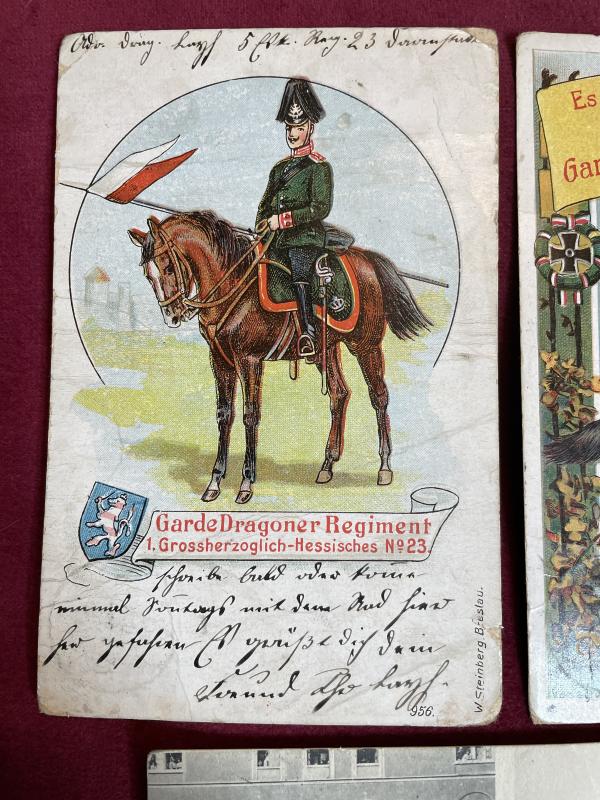 Adr. Drag. 5 Esk. Reg. 23 Darmstadt
GardeDragoner Regiment
1. Grossherzoglich-Hessisches Nº 23.
schreibe bald oder komme
einmal Sontags mit dem Rad hier
her gefahren Es grüßt dich dein
Freund
956.
W. Steinberg Breslau.
Es
Gar